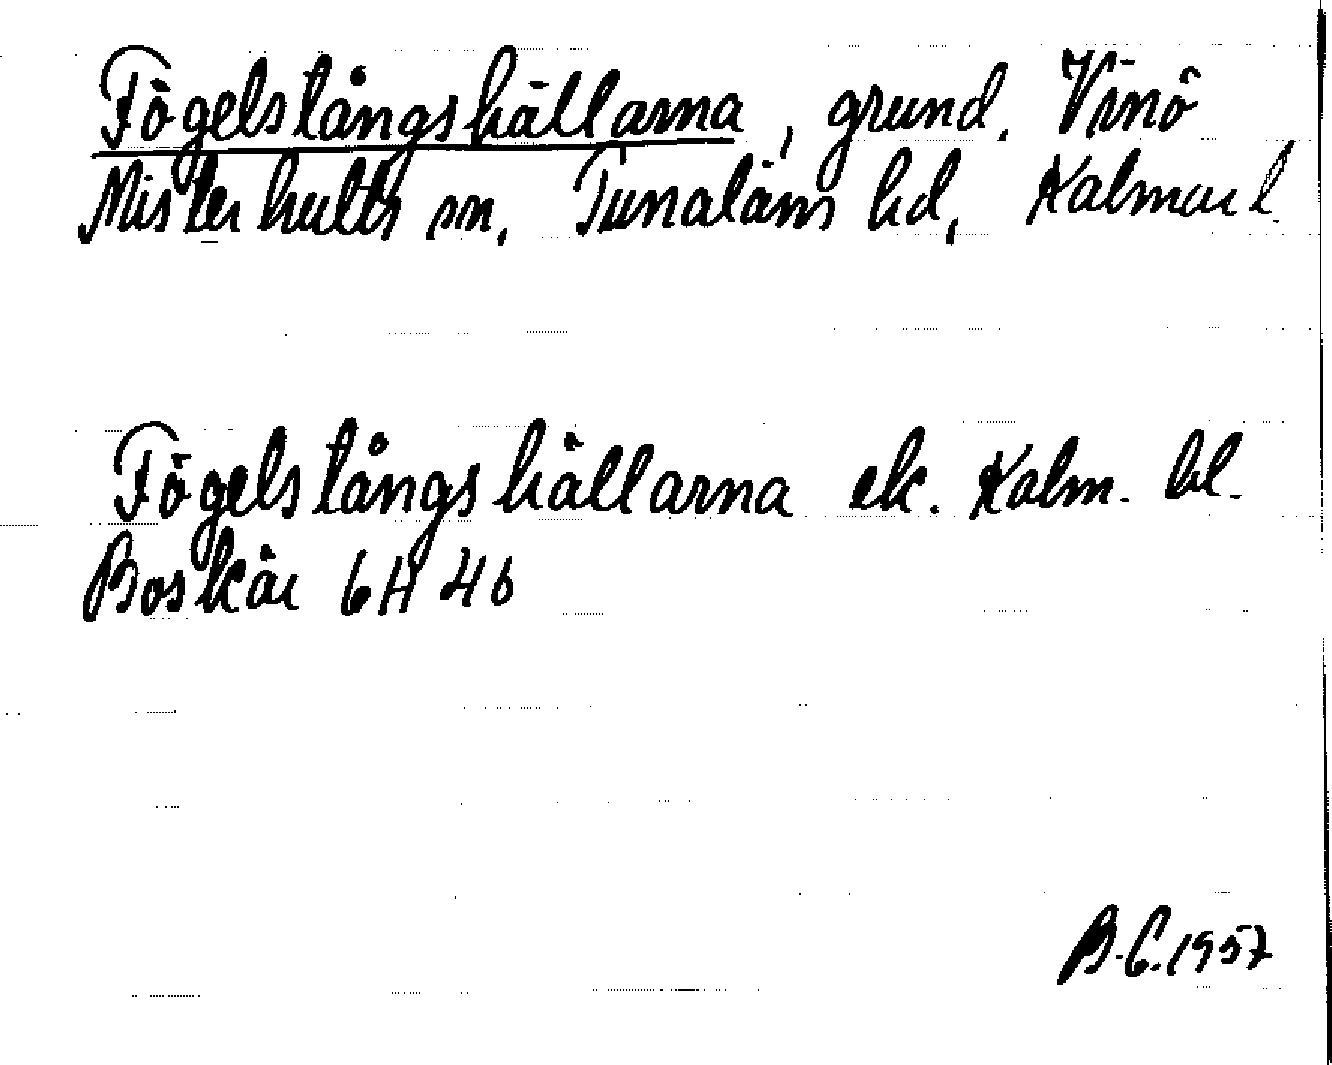 Fögelstångshällarna, grund. Vinö
Misterhults sn. Tunaläns hd, Kalmar l.
Fögelstångshällarna ek. Kalm. bl.
Boskär 6H 4b
B.C.1957